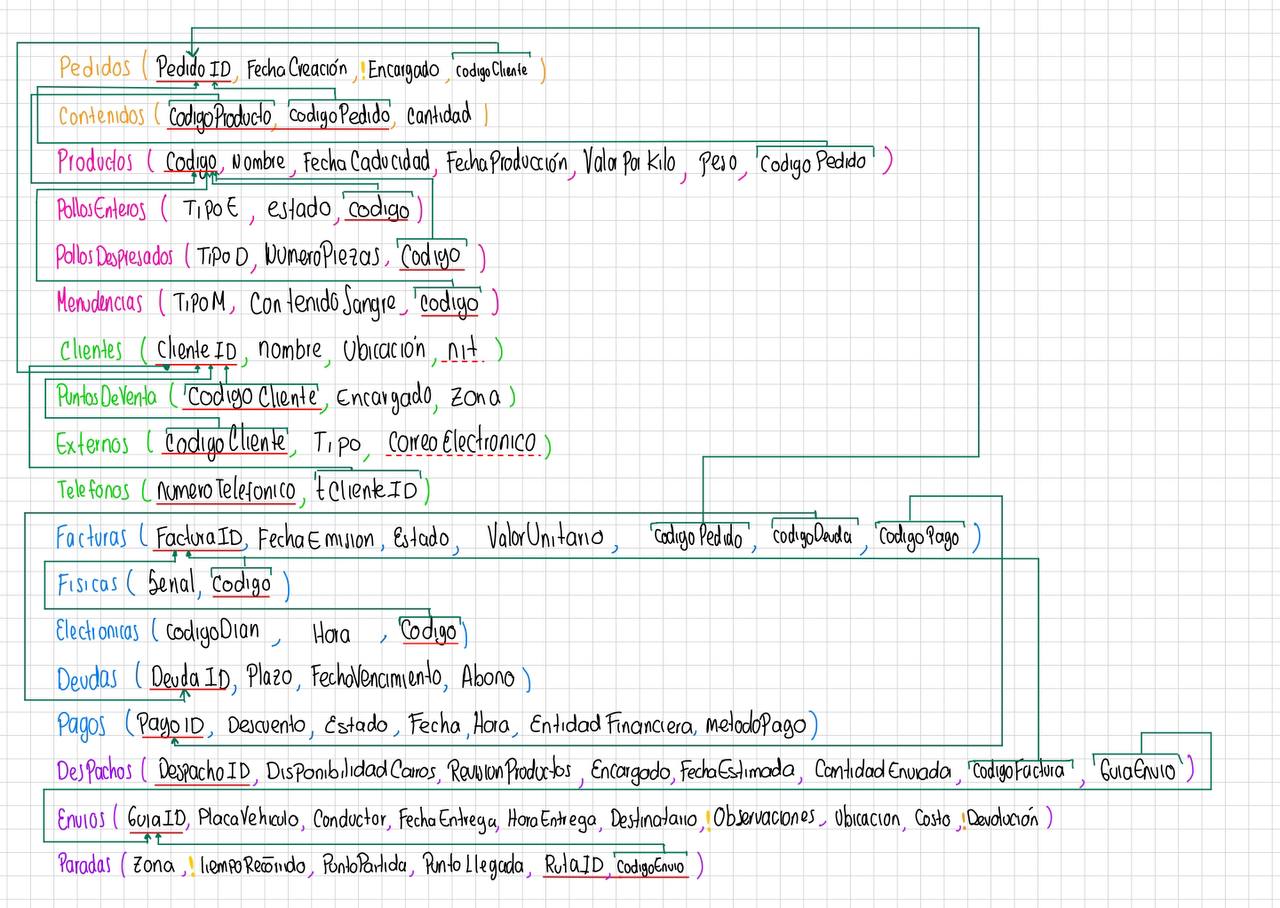 Pedidos ( PedidoID, FechaCreación, !Encargado, codigoCliente )
Contenidos ( CodigoProducto, codigoPedido, cantidad )
Productos ( Codigo, Nombre, FechaCaducidad, FechaProducción, ValorPorKilo, Peso, CodigoPedido )
PollosEnteros ( TipoE, estado, codigo )
PollosDespresados ( TipoD, NumeroPiezas, Codigo )
Menudencias ( TipoM, ContenidoSangre, codigo )
Clientes ( ClienteID, nombre, Ubicación, nit )
PuntosDeVenta ( CodigoCliente, Encargado, Zona )
Externos ( CodigoCliente, Tipo, CorreoElectronico )
Telefonos ( numeroTelefonico, tClienteID )
Facturas ( FacturaID, FechaEmision, Estado, ValorUnitario, CodigoPedido, codigoDeuda, CodigoPago )
Fisicas ( Serial, Codigo )
Electronicas ( codigoDian, Hora, Codigo )
Deudas ( DeudaID, Plazo, FechaVencimiento, Abono )
Pagos ( PagoID, Descuento, Estado, Fecha, Hora, Entidad Financiera, metodoPago )
Despachos ( DespachoID, DisponibilidadCarros, RevisionProductos, Encargado, FechaEstimada, CantidadEnviada, CodigoFactura, GuiaEnvio )
Envios ( GuiaID, PlacaVehiculo, Conductor, FechaEntrega, HoraEntrega, Destinatario, !Observaciones, Ubicacion, Costo, !Devolución )
Paradas ( Zona, !TiempoRecorrido, PuntoPartida, PuntoLlegada, RutaID, CodigoEnvio )